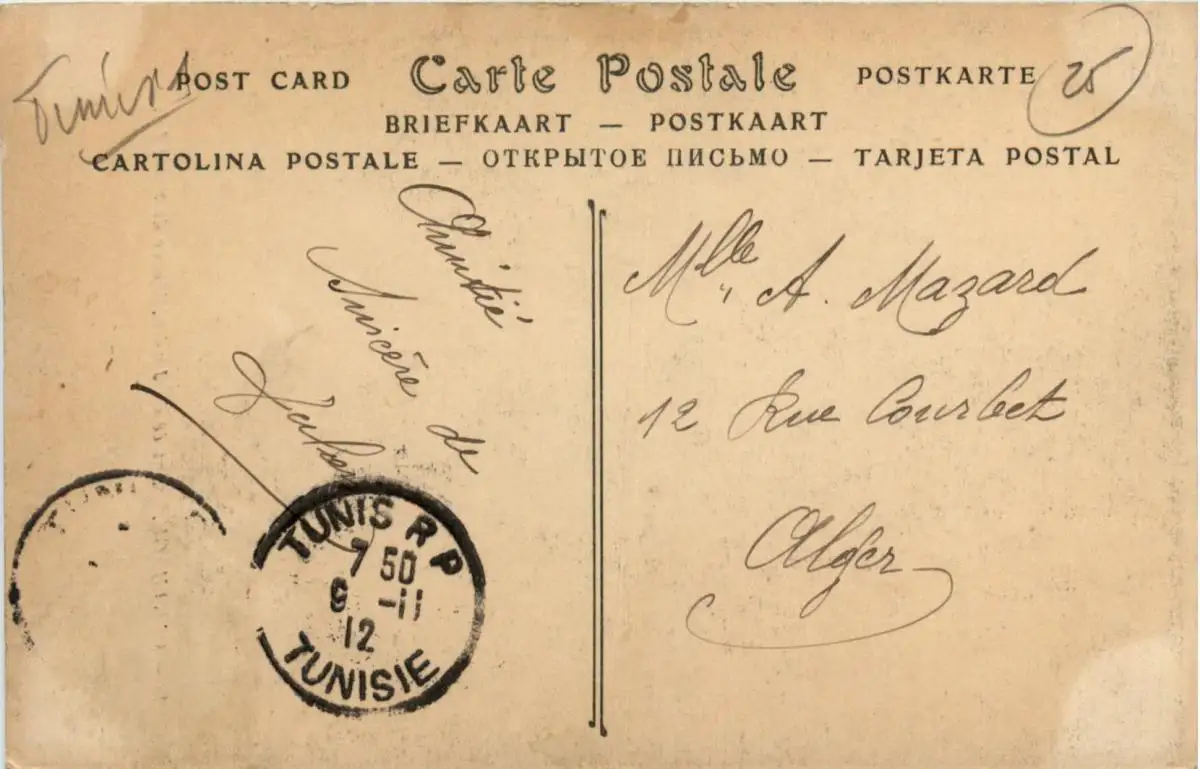 POST CARD Carte Postale POSTKARTE 25
BRIEFKAART — POSTKAART
CARTOLINA POSTALE — ОТКРЫТОЕ ПИСЬМО — TARJETA POSTAL
Amitié
Sincère de
Mlle A. Mazard
12 Rue Courbet
Alger
TUNIS R P
7 50
9 -11
12
TUNISIE